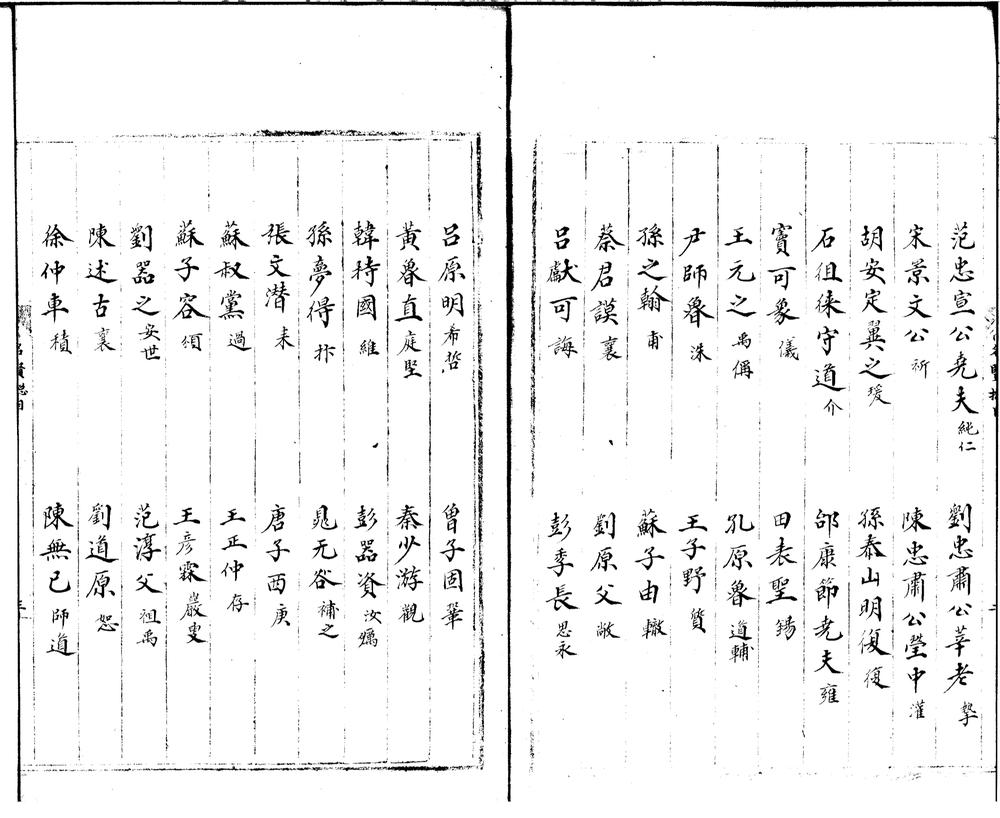 范忠宣公堯夫純仁 劉忠肅公莘老摯
宋景文公祈 陳忠肅公瑩中灌
胡安定翼之瑗 孫泰山明復復
石徂徕守道介 邵康節堯夫雍
竇可象儀 田表聖錫
王元之禹偁 孔原魯道輔
尹師魯洙 王子野質
孫之翰甫 蘇子由轍
蔡君謨襄 劉原父敞
呂獻可誨 彭季長思永
呂原明希哲 曾子固鞏
黃魯直庭堅 秦少游觀
韓持國維 彭器資汝礪
孫夢得抃 晁无咎補之
張文潛耒 唐子西庚
蘇叔黨過 王正仲存
蘇子容頌 王彦霖巖叟
劉器之安世 范淳父祖禹
陳述古襄 劉道原恕
徐仲車積 陳無已師道